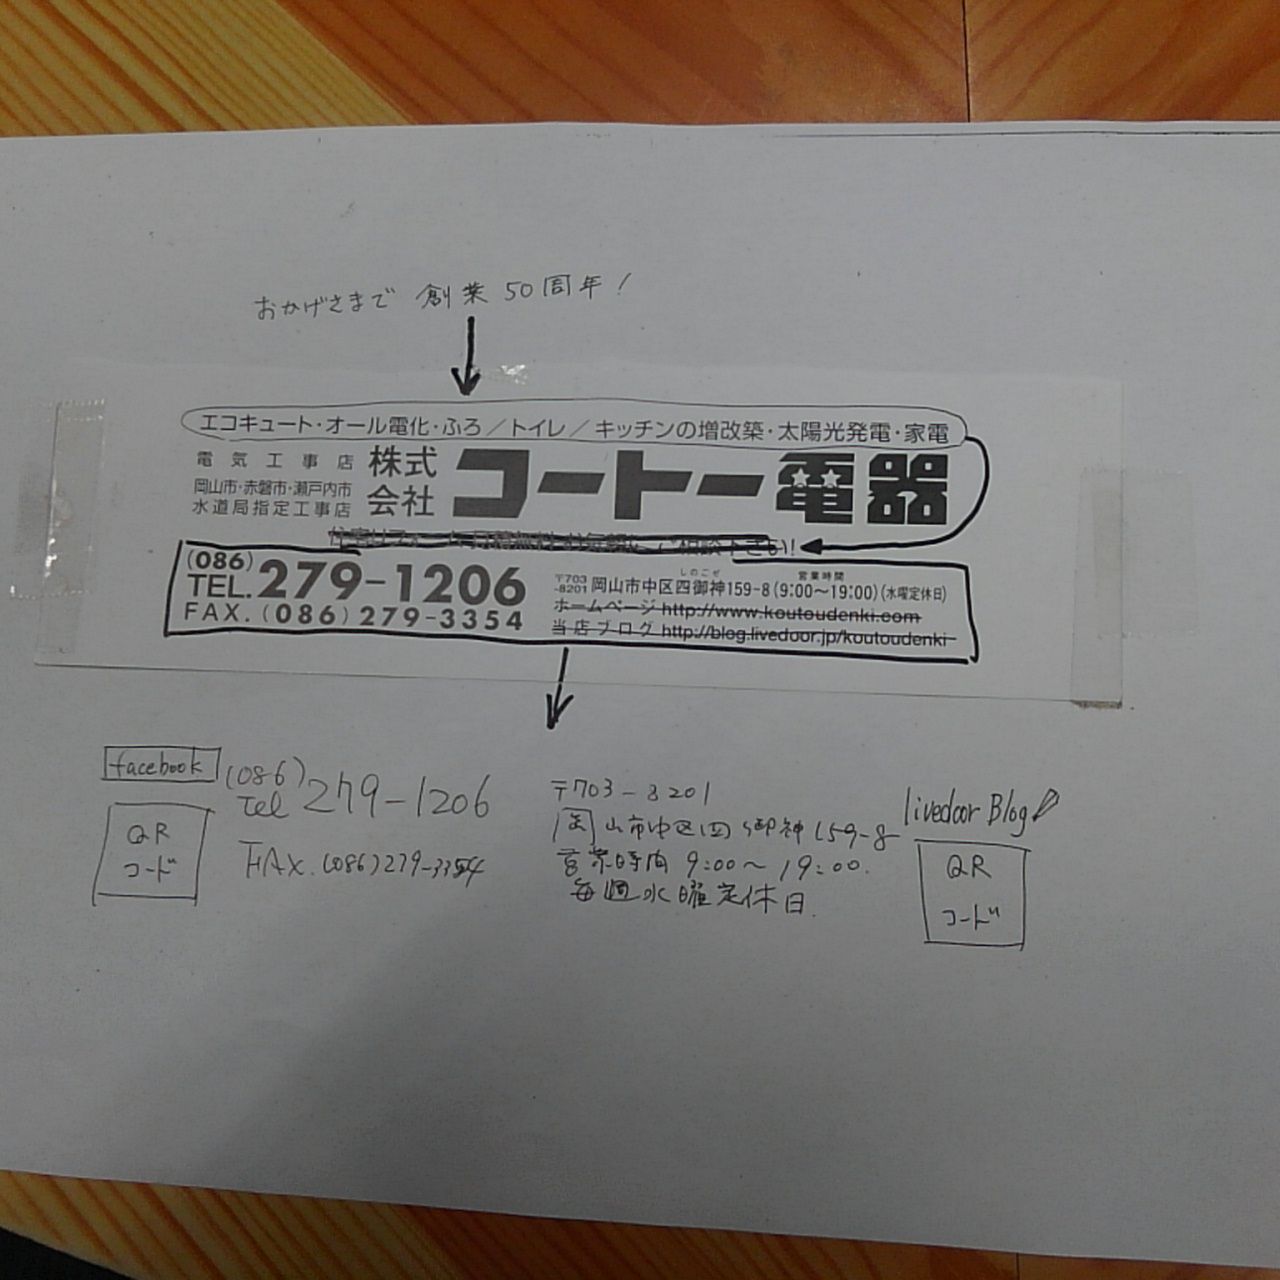 おかげさまで 創業50周年!
エコキュート・オール電化・ふろ/トイレ/キッチンの増改築・太陽光発電・家電
電気工事店
岡山市・赤磐市・瀬戸内市
水道局指定工事店
株式会社 コートー電器
住宅リフォーム見積無料 お気軽にご相談下さい!
(086)
TEL.279-1206
FAX.(086)279-3354
しのごぜ 営業時間
〒703-8201 岡山市中区四御神159-8(9:00〜19:00)(水曜定休日)
ホームページ http://www.koutoudenki.com
当店ブログ http://blog.livedoor.jp/koutoudenki
facebook
QR
コード
(086)
Tel 279-1206
FAX.(086)279-3354
〒703-8201
岡山市中区四御神159-8
営業時間 9:00〜19:00.
毎週水曜定休日.
livedoor Blog
QR
コード